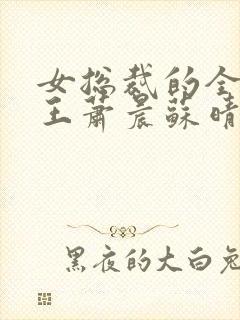 女总裁的全
王萧晨苏晴
黑夜的大白兔